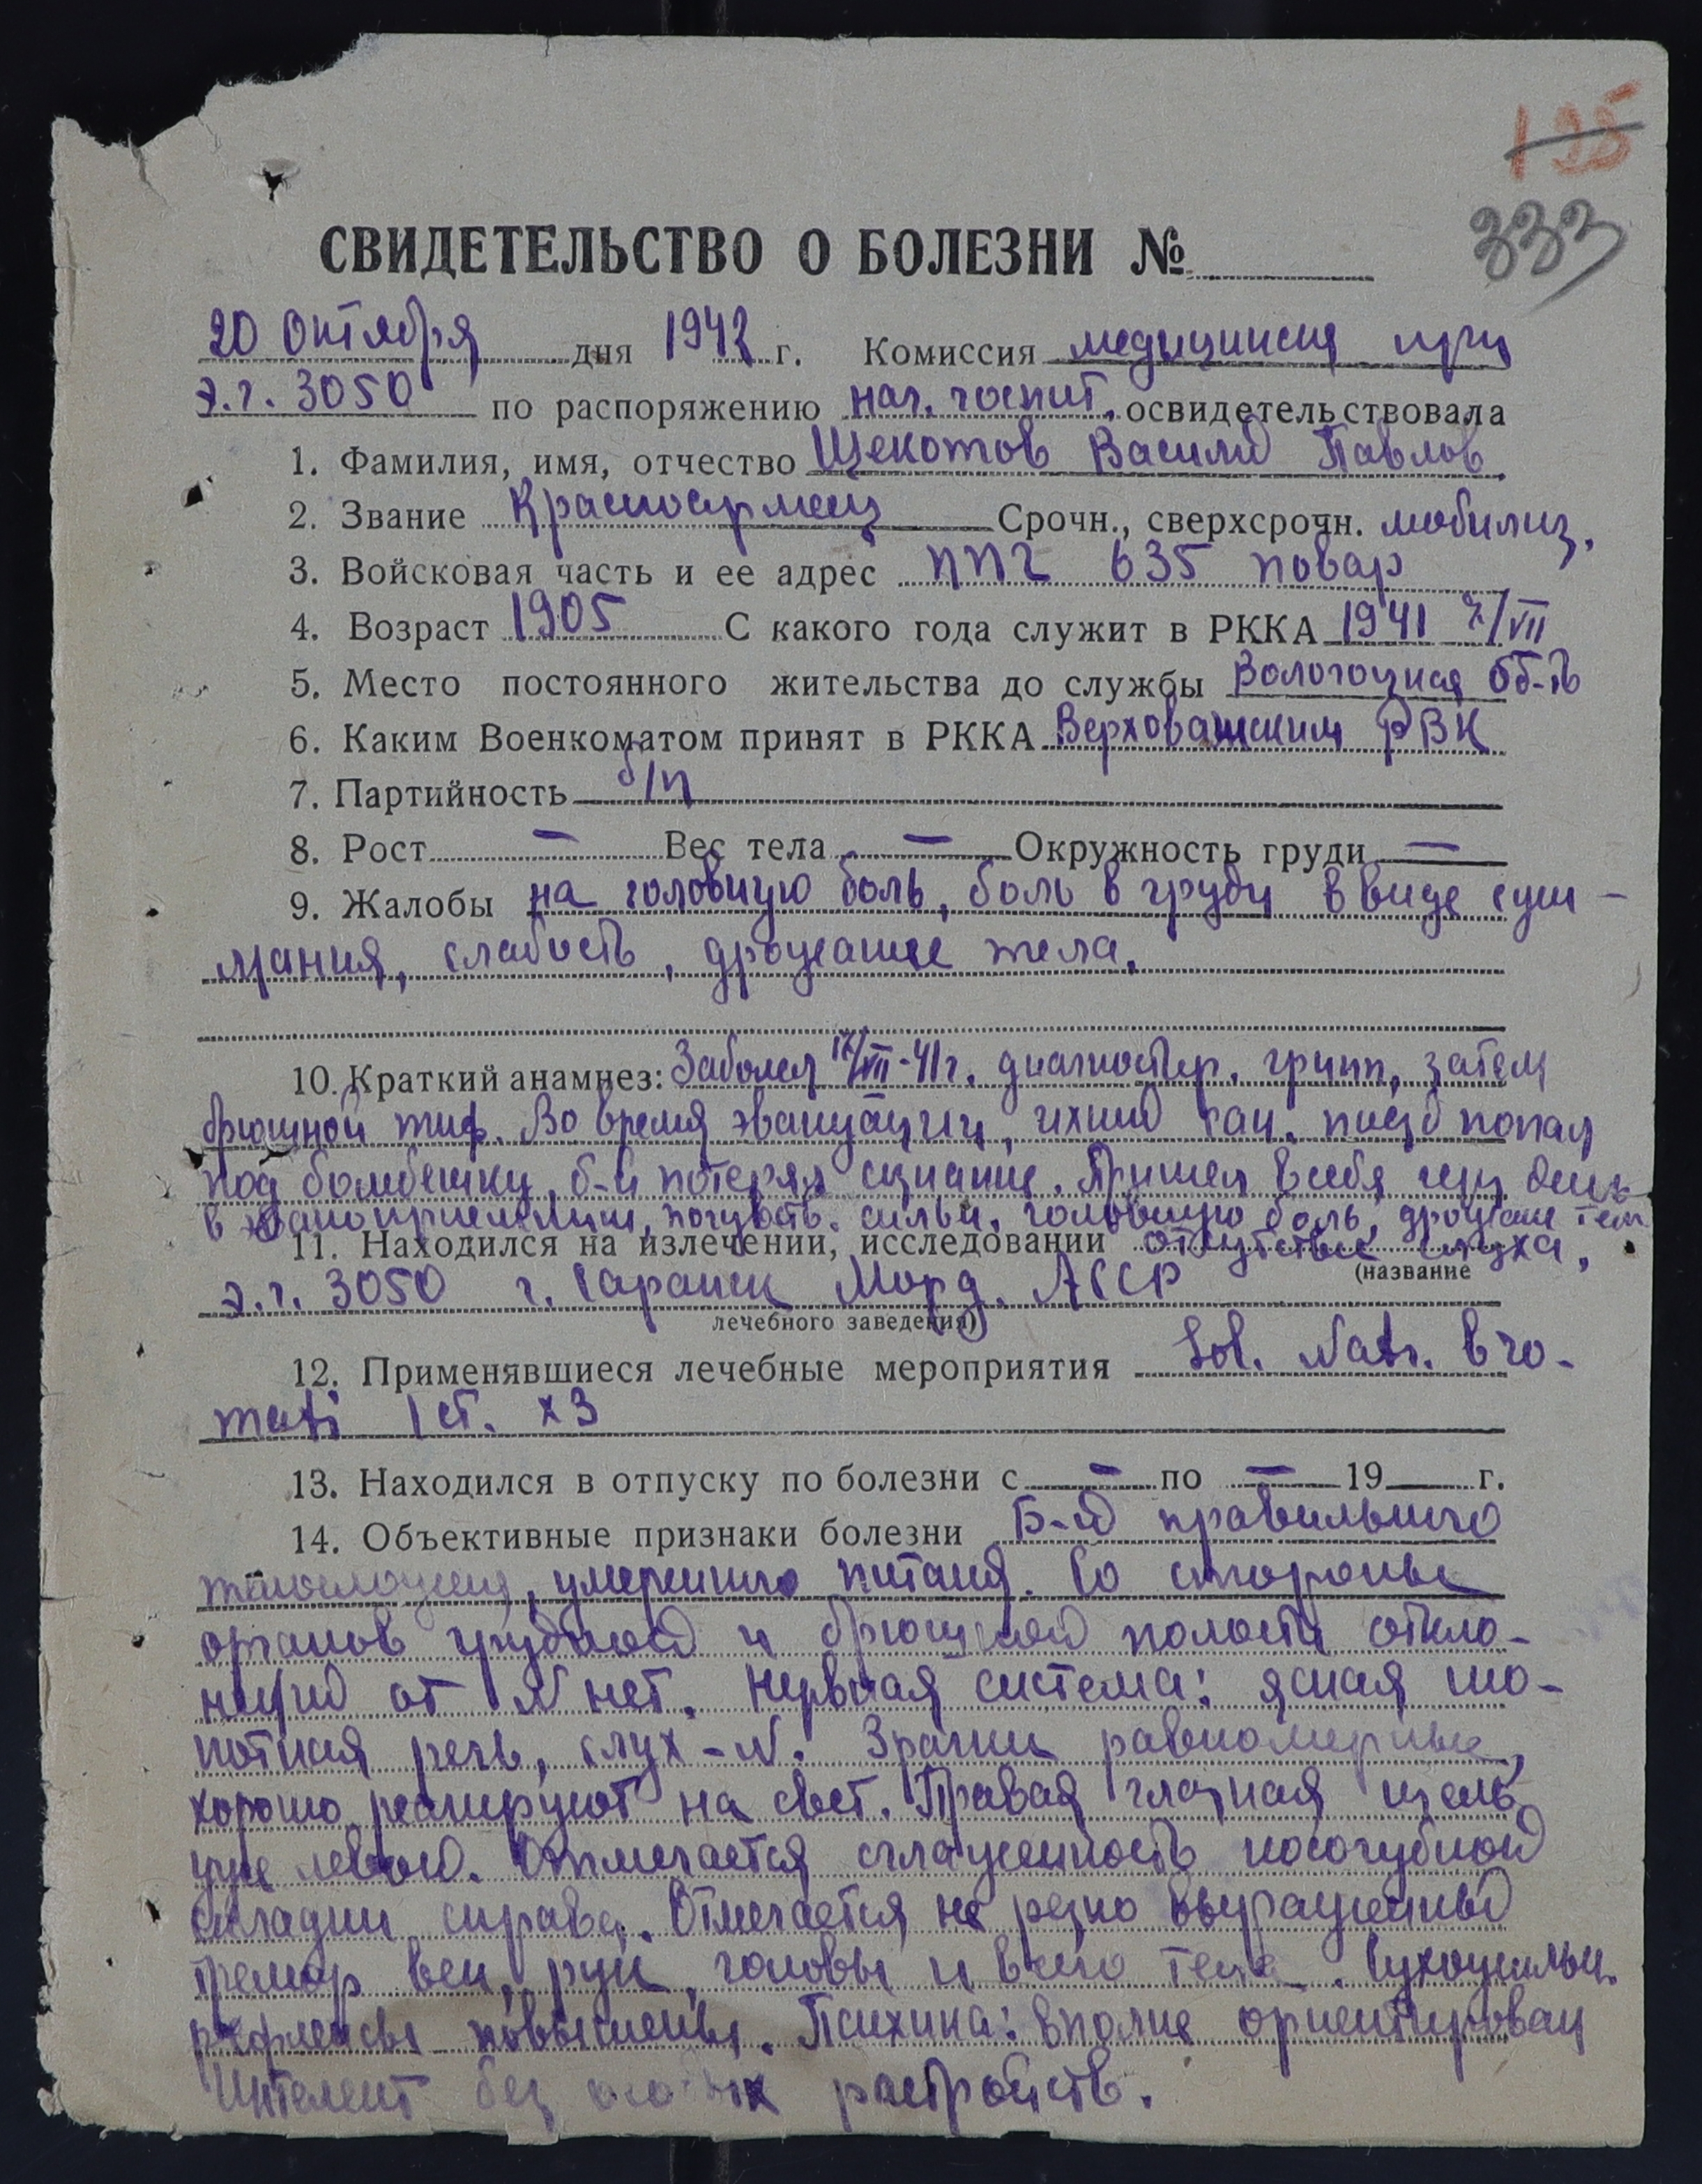 195
333
СВИДЕТЕЛЬСТВО О БОЛЕЗНИ №
20 Октября дня 1942 г. Комиссия медицинская при
э.г. 3050 по распоряжению нач. госпит. освидетельствовала
1. Фамилия, имя, отчество Щекотов Василий Павлов.
2. Звание Красноармеец Срочн., сверхсрочн. мобилиз.
3. Войсковая часть и ее адрес ППГ 635 повар
4. Возраст 1905 С какого года служит в РККА 1941 /VII
5. Место постоянного жительства до службы Вологодская об-ть
6. Каким Военкоматом принят в РККА Верховажским РВК
7. Партийность б/п
8. Рост — Вес тела — Окружность груди —
9. Жалобы на головную боль, боль в груди в виде сжи-
мания, слабость, дрожание тела.
10. Краткий анамнез: Заболел /VII-41г. диагностир. грипп, затем
брюшной тиф. Во время эвакуации, ихний сан. поезд попал
под бомбежку, б-й потерял сознание. Пришел в себя через день
в эвакоприемнике, почувств. сильн. головную боль, дрожание тела
11. Находился на излечении, исследовании отсутствие слуха,
(название
э.г. 3050 г. Саранск Морд. АССР
лечебного заведения)
12. Применявшиеся лечебные мероприятия Sol. Natr. bro-
mati 1 ст. х 3
13. Находился в отпуску по болезни с — по — 19 г.
14. Объективные признаки болезни Б-й правильного
телосложения, умеренного питания. Со стороны
органов грудной и брюшной полости откло-
нений от N нет. Нервная система: ясная шо-
потная речь, слух - N. Зрачки равномерные,
хорошо реагируют на свет. Правая глазная щель
уже левой. Отмечается сглаженность носогубной
складки справа. Отмечается не резко выраженный
тремор век, рук, головы и всего тела. Сухожильн.
рефлексы повышены. Психика: вполне ориентирован
Интелект без особых растройств.